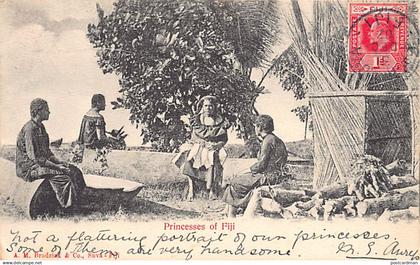 POSTAGE
REVENUE
FIJI
1d
Princesses of Fiji
A. M. Brodziak & Co., Suva - Fiji
Not a flattering portrait of our princesses.
Some of them are very handsome
postcardman